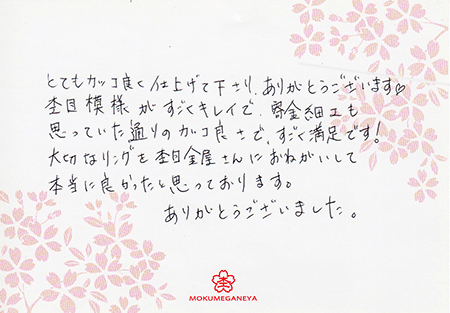 とてもカッコ良く仕上げて下さり、ありがとうございます♡
杢目模様がすごくキレイで、寄金細工も
思っていた通りのカッコ良さで、すごく満足です!
大切なリングを杢目金屋さんにおねがいして
本当に良かったと思っております。
ありがとうございました。
杢
MOKUMEGANEYA